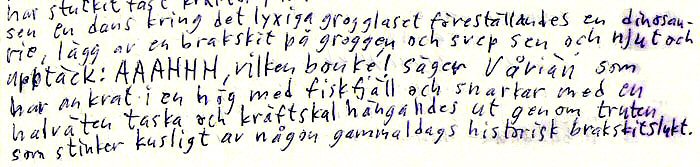 har stulkit fast
sen en dans kring det lyxiga grogglaset föreställandes en dinosau-
rie, lägg av en brakskit på groggen och svep sen och njut och
upptäck: AAAHHH, vilken bouké! säger Vårian som
har ankrat i en hög med fiskfjäll och snarkar med en
halväten taska och kräftskal hängandes ut genom truten
som stinker kusligt av någon gammaldags historisk brakskitslukt.